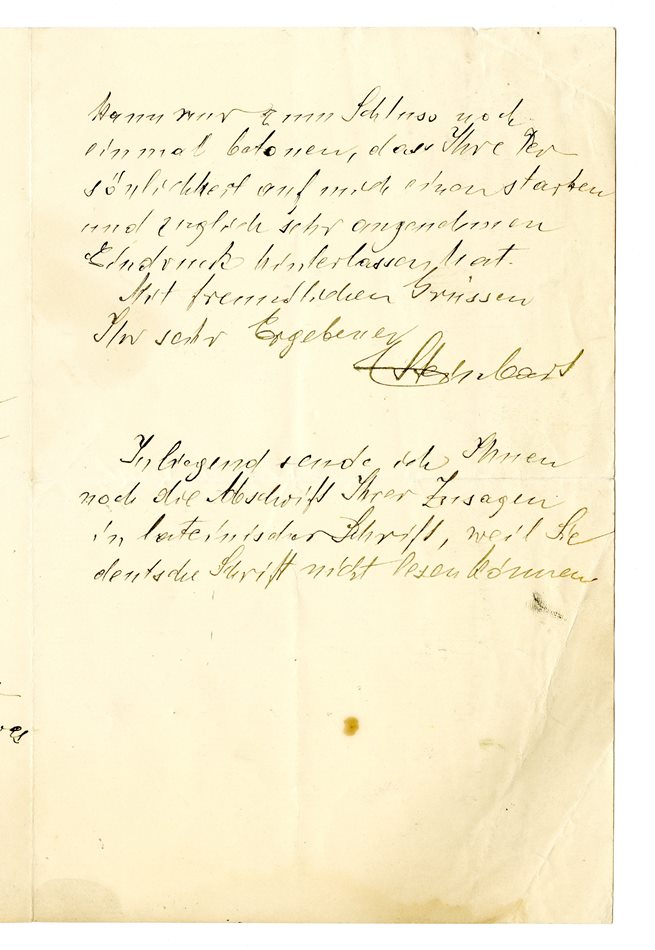 kann nur zum Schluss noch
einmal betonen, dass Ihre Per
sönlichkeit auf mich einen starken
und zuglich sehr angenehmen
Eindruck hinterlassen hat.
Mit freundlichen Grüssen
Ihr sehr Ergebener
Steinbart
Inliegend sende ich Ihnen
noch die Abschrift Ihrer Zusagen
in lateinischer Schrift, weil Sie
deutsche Schrift nicht lesen können